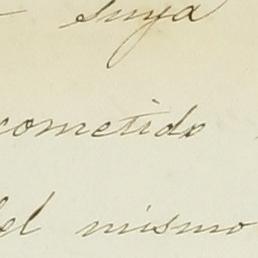 suya
cometido
el mismo